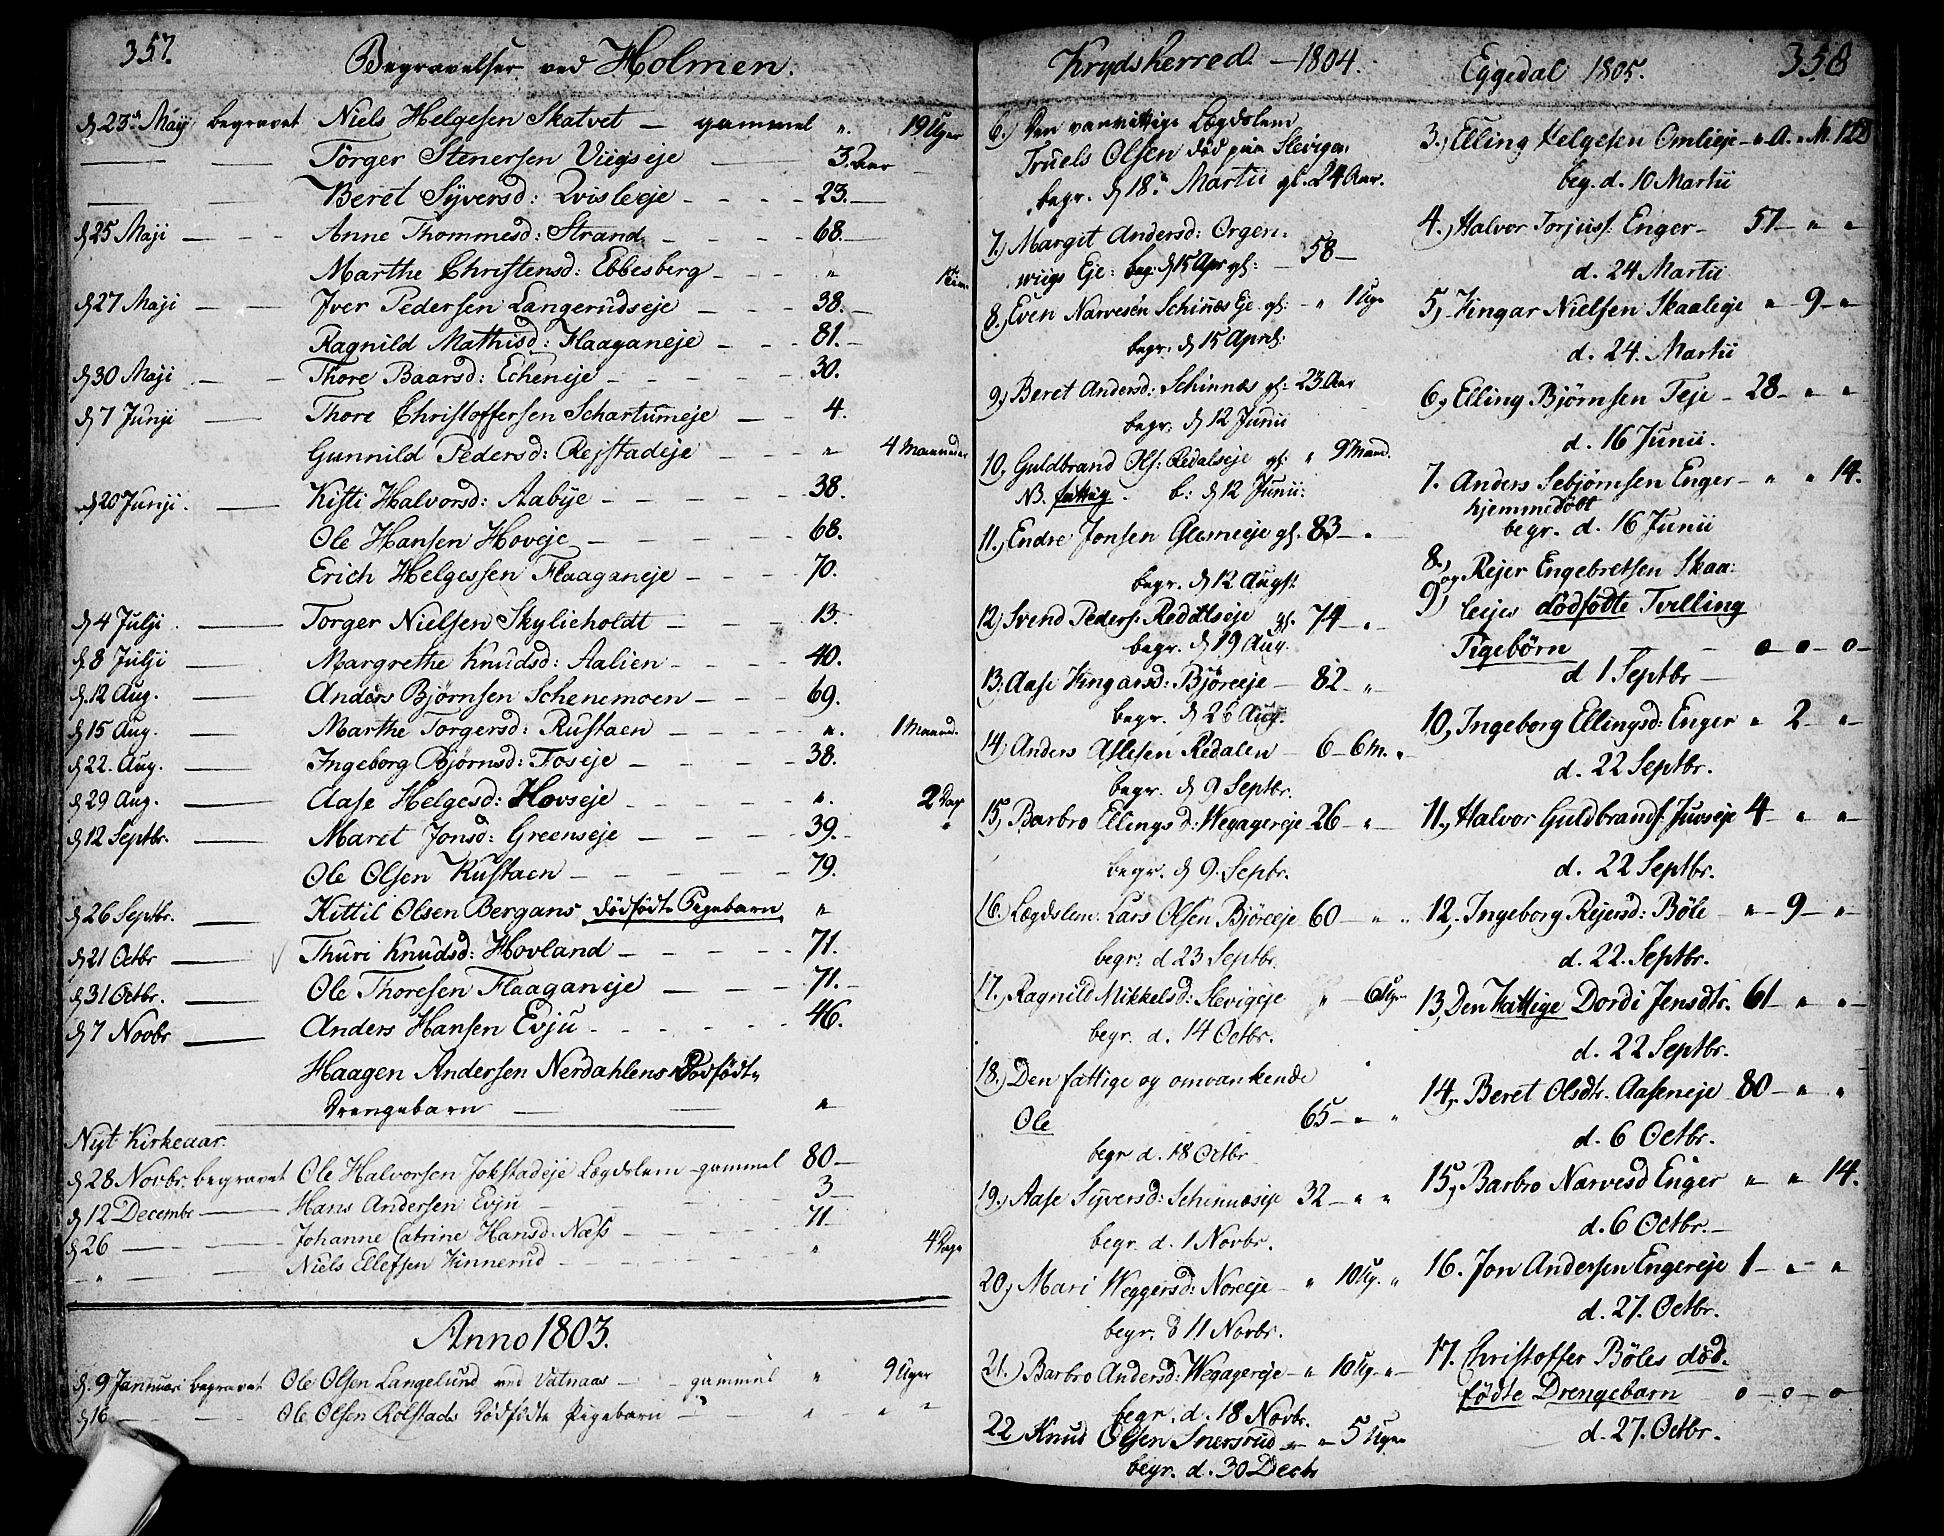 357.
Begravelser ved Holmen.
d 23de Maji begravet Niels Helgesen Skatvet — gammel „ 19 Uger
— — Torger Stenersen Viigseje — 3. Aar
— — Beret Syversd: Qvisleeje - - - - 23. —
d 25 Maji — — Anne Thommesd: Strand - - - - 68. —
Marthe Christensd: Ebbesberg - - - „
d 27 Maji — Iver Pedersen Langerudseje — — — 38. —
Ragnild Mathisd: Flaaganeje — — — 81. —
d 30 Maji — — Thore Baarsd: Echeneje - - - - 30.
d 7 Junji — Thore Christoffersen Schartumeje — — 4.
Gunnild Pedersd: Rejstadeje - - - „ 4 Maaneder
d 20 Junji. — Kisti Halvorsd: Aabye - - - - 38.
Ole Hansen Hoveje - - - - 68.
Erich Helgessen Flaaganeje - - - 70.
d 4 Julji. — Torger Nielsen Skylieholdt - - - 13.
d 8 Julji — Margrethe Knudsd: Aalien - - - 40.
d. 12 Aug. — Anders Bjørnsen Schenemoen - - - 69.
d 15 Aug. — Marthe Torgersd: Rustaen - - - - „. 1 Maaned.
d 22. Aug. — Ingeborg Bjørnsd: Foseje - - - - 38.
d 29 Aug. — Aase Helgesd: Hovseje - - - - „. 2 Dage
d 12 Septbr. — Maret Jonsd: Greenseje - - - - 39. -
Ole Olsen Rustaen - - - - 79.
d 26 Septbr. — Kittil Olsen Bergans dødfødte Pigebarn „
d 21 Octbr — Thuri Knudsd: Hovland - - - - 71.
d 31 Octbr. — Ole Thoresen Flaaganeje - - - 71. -
d 7 Novbr — Anders Hansen Evju - - - - 46.
Haagen Andersen Nerdahlens Dødfødte
Drengebarn — — „
Nyt Kirkeaar.
d 28 Novbr. begravet Ole Halvorsen Jokstadeje Lægdslem - gammel 80 —
d 12 Decembr — Hans Andersen Evju - - 3 —
d 26 — — Johanne Catrine Hansd: Næss - - 71 —
- „ — — Niels Ellefsen Finnerud - - - - „ 4 Dage
Anno 1803.
d. 9 Januari begravet Ole Olsen Langelund ved Vatnaas — - gammel „ 9 Uger
d 16 — — Ole Olsen Rolstads Dødfødte Pigebarn — - „ „ „
Krydsherred. — 1804.
6.) Den vanvittige Lægdslem
Truels Olsen død paa Slevigen:
begr. d 18de Martii gl. 24 Aar.
7.) Margit Andersd: Orgen:
wiigs Eje: beg: d 15 Apr gl: - 58 —
8.) Even Narvesøn Schinnæs Eje gl: - „ 1 Uge
begr. d 15 April:
9.) Beret Andersd: Schinnæs gl: 23 Aar
begr: d 12 Junii
10, Guldbrand Ols: Redalseje gl: „ 9 Maan.
NB. fattig. b: d 12 Junii:
11., Endre Jonsen Glesneeje gl. 83 — „
begr. d 12 Augst:
12) Svend Peders: Redalseje gl. 74 — „
begr. d 19 Aug.
13. Aase Hingarsd: Bjøreeje — 82 — „
begr. d 26 Aug.
14) Anders Aslesen Redalen — 6 — 6 M. „
begr. d 9 Septbr.
15, Barbro Ellingsd: Wegagereje 26 — „ —
begr. d 9. Septbr.
16.) Lægdslem. Lars Olsen Bjøreeje 60 — „ „
begr: d 23 Septbr.
17., Ragnild Mikkelsd: Slevigeje „ — 6 Ug. —
begr. d. 14 Octbr.
18.) Den fattige og omvankende
Ole 65 — „ „
begr d. 18 Octbr
19.) Aase Syversd: Schinnæseje 32 — „ „
begr. d. 1 Novbr.
20, Mari Weggersd: Noreeje — „ 10 Ug. „
begr. d 11 Novbr.
21.) Barbro Andersd: Wegagereje — „ 10 Ug. „ —
begr. d. 18 Novbr.
22 Knud Olsen Snersrud — „ 5 Uger
begr. d. 30 Decbr
Eggedal 1805. 358
3., Elling Helgesen Omlieje — „ A. „ M. 12 D
beg. d. 10 Martii
4., Halvor Torjuss: Enger — 57 — „ „
d. 24 Martii
5, Hingar Nielsen Skaaleeje „ 9 — „ —
d. 24. Martii
6, Elling Bjørnsen Teje — 28 — „ „
d. 16 Junii.
7. Anders Sebjørnsen Enger — „ „ 14.
hjemmedøbt
begr. d. 16 Junii
8., og Rejer Engebretsen Skaa:
9, lejes dødfødte Tvilling
Pigebørn - 0 — 0 — 0 —
d 1 Septbr —
10, Ingeborg Ellingsd: Enger „ 2 — „ —
d. 22 Septbr.
11., Halvor Guldbrands: Juvseje 4 — „ „ —
d. 22 Septbr.
12., Ingeborg Rejersd: Bøle — „ — 9 — „ —
d. 22. Septbr.
13, Den Fattige Dordi Jensdtr. 61 — „ „ —
d. 22 Septbr.
14, Beret Olsdtr. Aaseneje 80 — „ „
d. 6 Octbr.
15, Barbro Narvesd Enger „ „ 14.
d. 6 Octbr. —
16. Jon Andersen Engereje 1 — „ — „
d. 27. Octbr.
17. Christoffer Bøles død.
fødte Drengebarn 0 — 0 — 0 —
d. 27. Octbr.